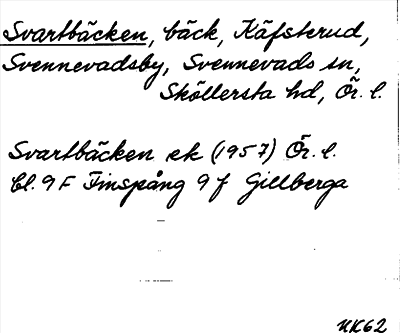 Svartbäcken, bäck, Käfsterud,
Svennevadsby, Svennevads sn,
Sköllersta hd, Ör. l.
Svartbäcken ek (1957) Ör. l.
bl. 9 F Finspång 9 f Gillberga
NK62